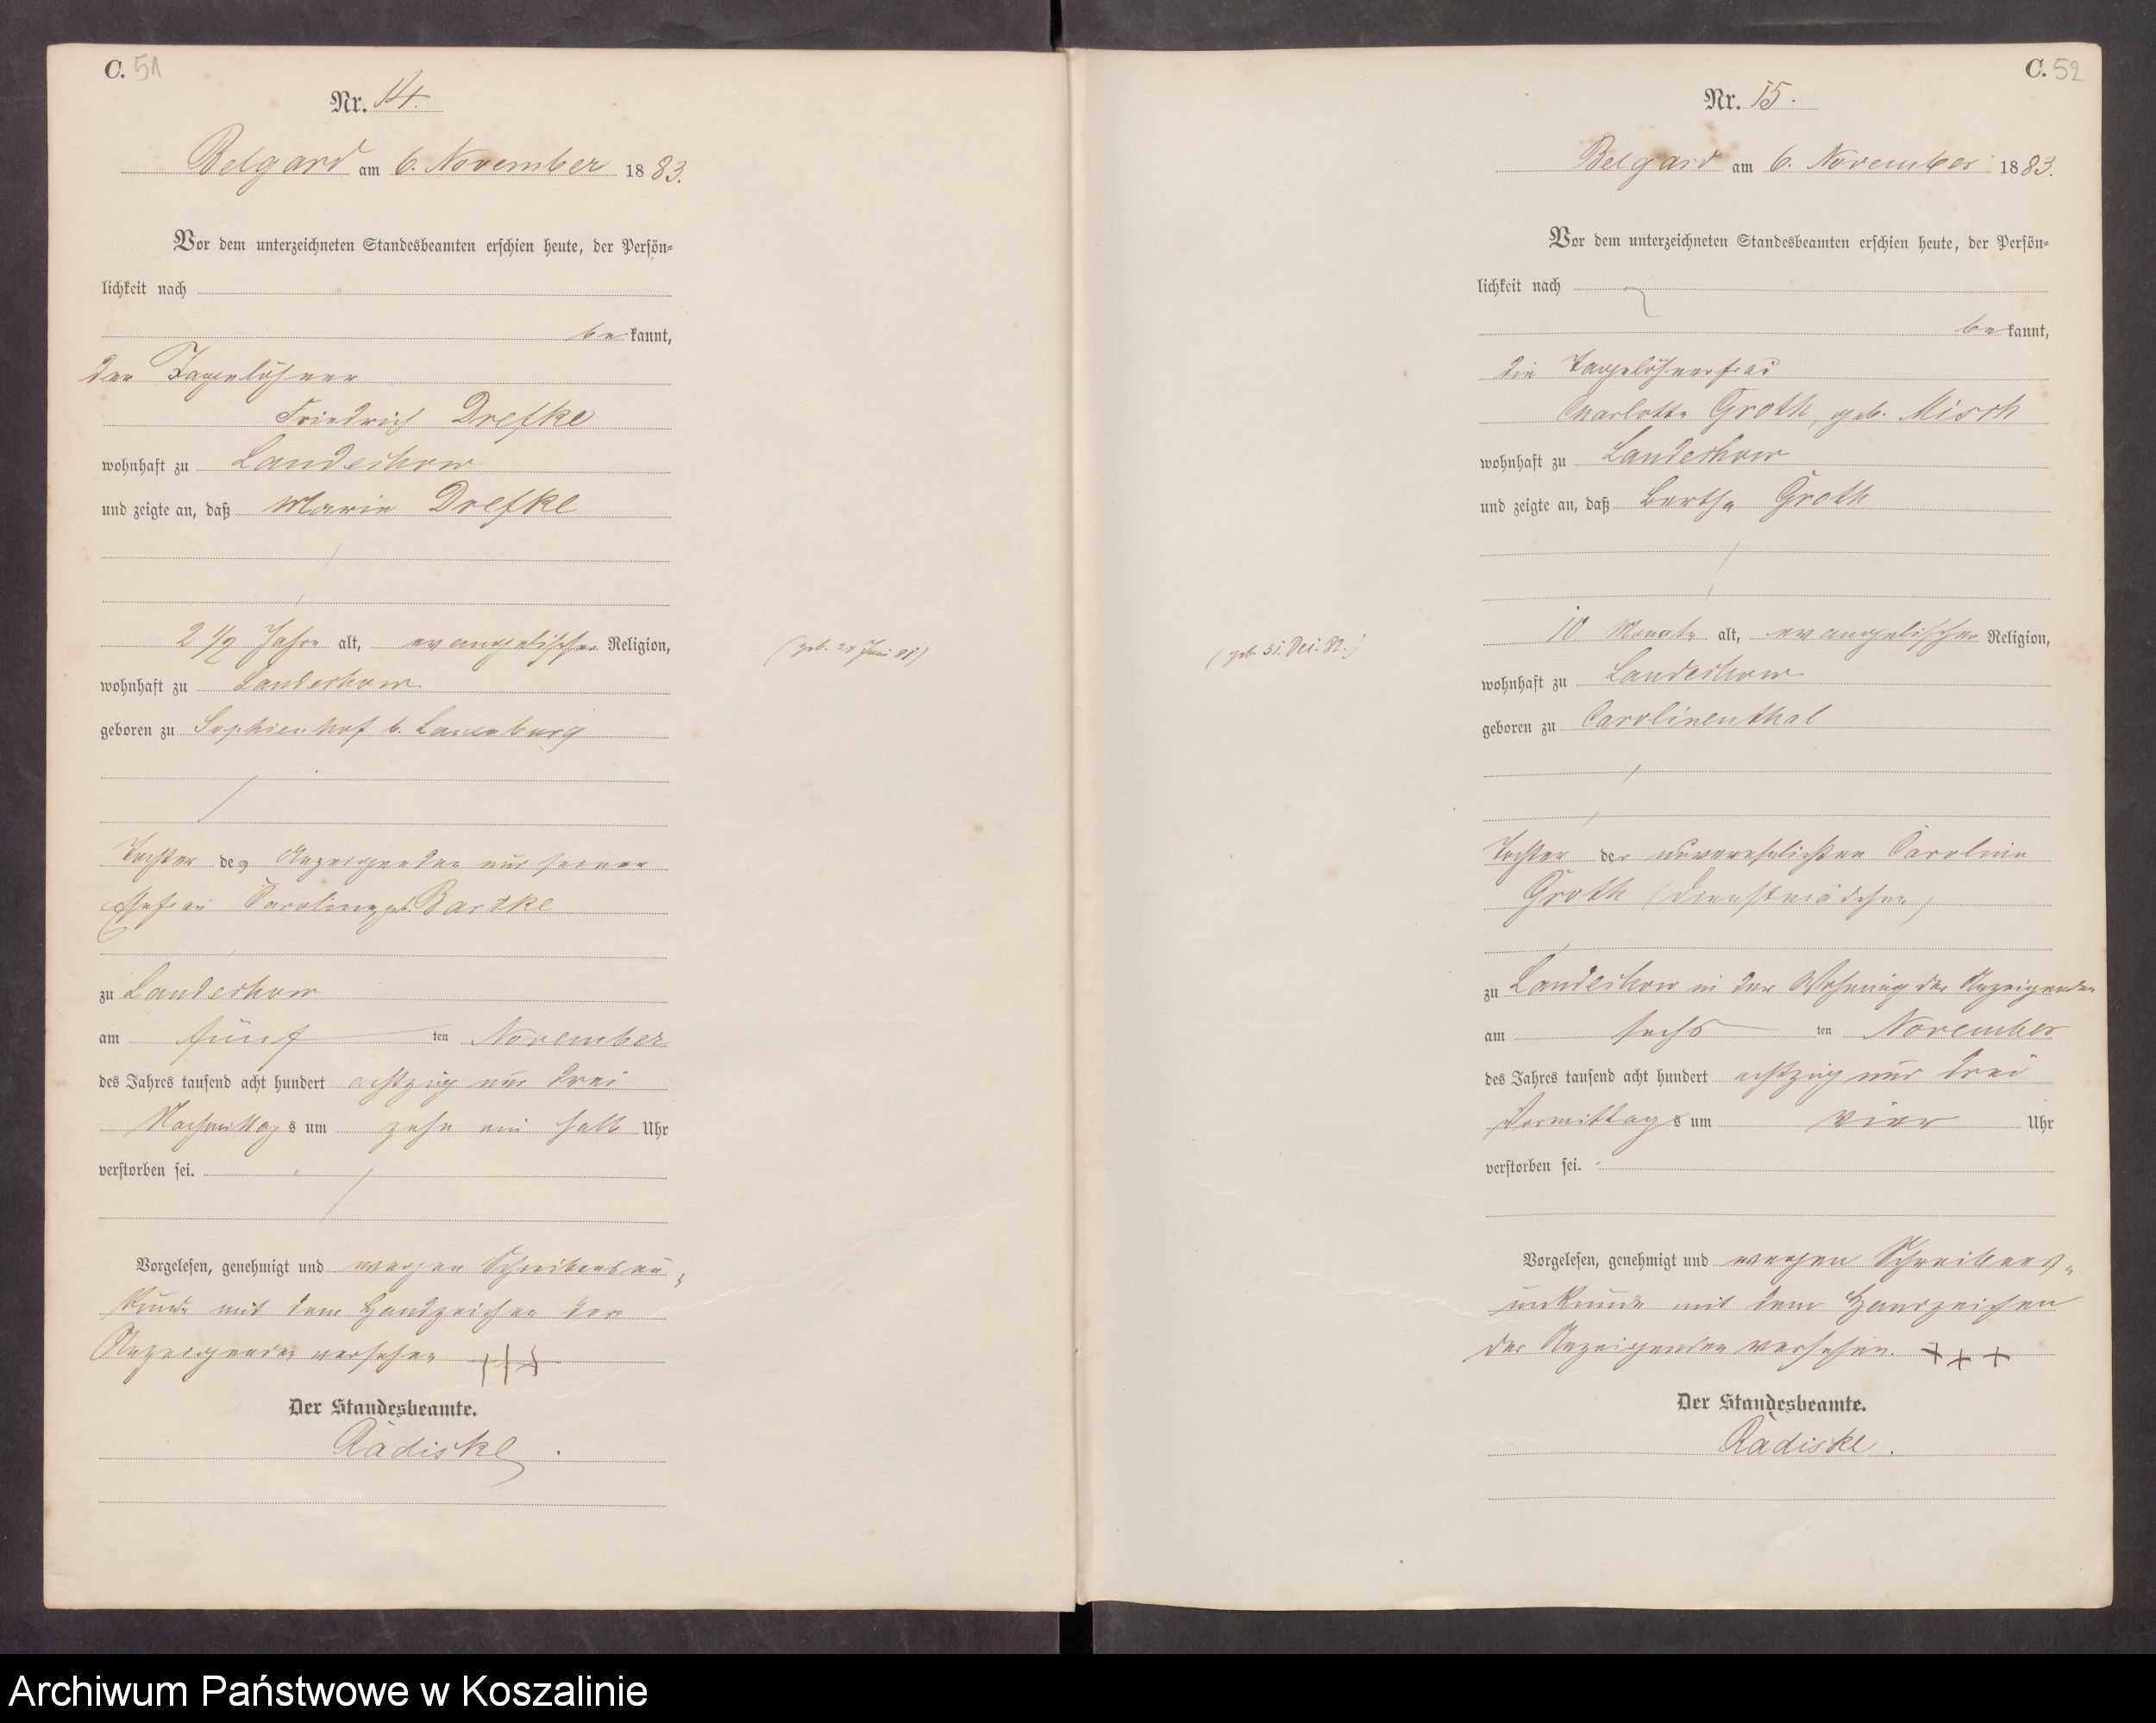 C. 51
Nr. 14.
Belgard am 6. November 1883.
Vor dem unterzeichneten Standesbeamten erschien heute, der Persön-
lichkeit nach
bekannt,
der Tagelöhner
Friedrich Drefke
wohnhaft zu Landechow
und zeigte an, daß Marie Drefke
2 1/2 Jahre alt, evangelischer Religion,
(geb. 24 Juni 81)
wohnhaft zu Landechow
geboren zu Sophienhof b. Lauenburg
Tochter des Anzeigenden und seiner
Ehefrau Caroline geb. Bartke
zu Landechow
am fünf ten November
des Jahres tausend acht hundert achtzig und drei
Nachmittags um zehn ein halb Uhr
verstorben sei.
Vorgelesen, genehmigt und wegen Schreibensun-
kunde mit dem Handzeichen des
Anzeigenden versehen +++
Der Standesbeamte.
Radiske.
C. 52
Nr. 15.
Belgard am 6. November 1883.
Vor dem unterzeichneten Standesbeamten erschien heute, der Persön-
lichkeit nach
bekannt,
die Tagelöhnerfrau
Charlotte Groth, geb. Misch
wohnhaft zu Landechow
und zeigte an, daß Bertha Groth
10 Monate alt, evangelischer Religion,
(geb. 31. Dec. 82.)
wohnhaft zu Landechow
geboren zu Carolinenthal
Tochter der unverehelichten Caroline
Groth (Dienstmädchen)
zu Landechow in der Wohnung der Anzeigenden
am sechs ten November
des Jahres tausend acht hundert achtzig und drei
Vormittags um vier Uhr
verstorben sei.
Vorgelesen, genehmigt und wegen Schreibens-
unkunde mit dem Handzeichen
der Anzeigenden versehen. +++
Der Standesbeamte.
Radiske.
Archiwum Państwowe w Koszalinie